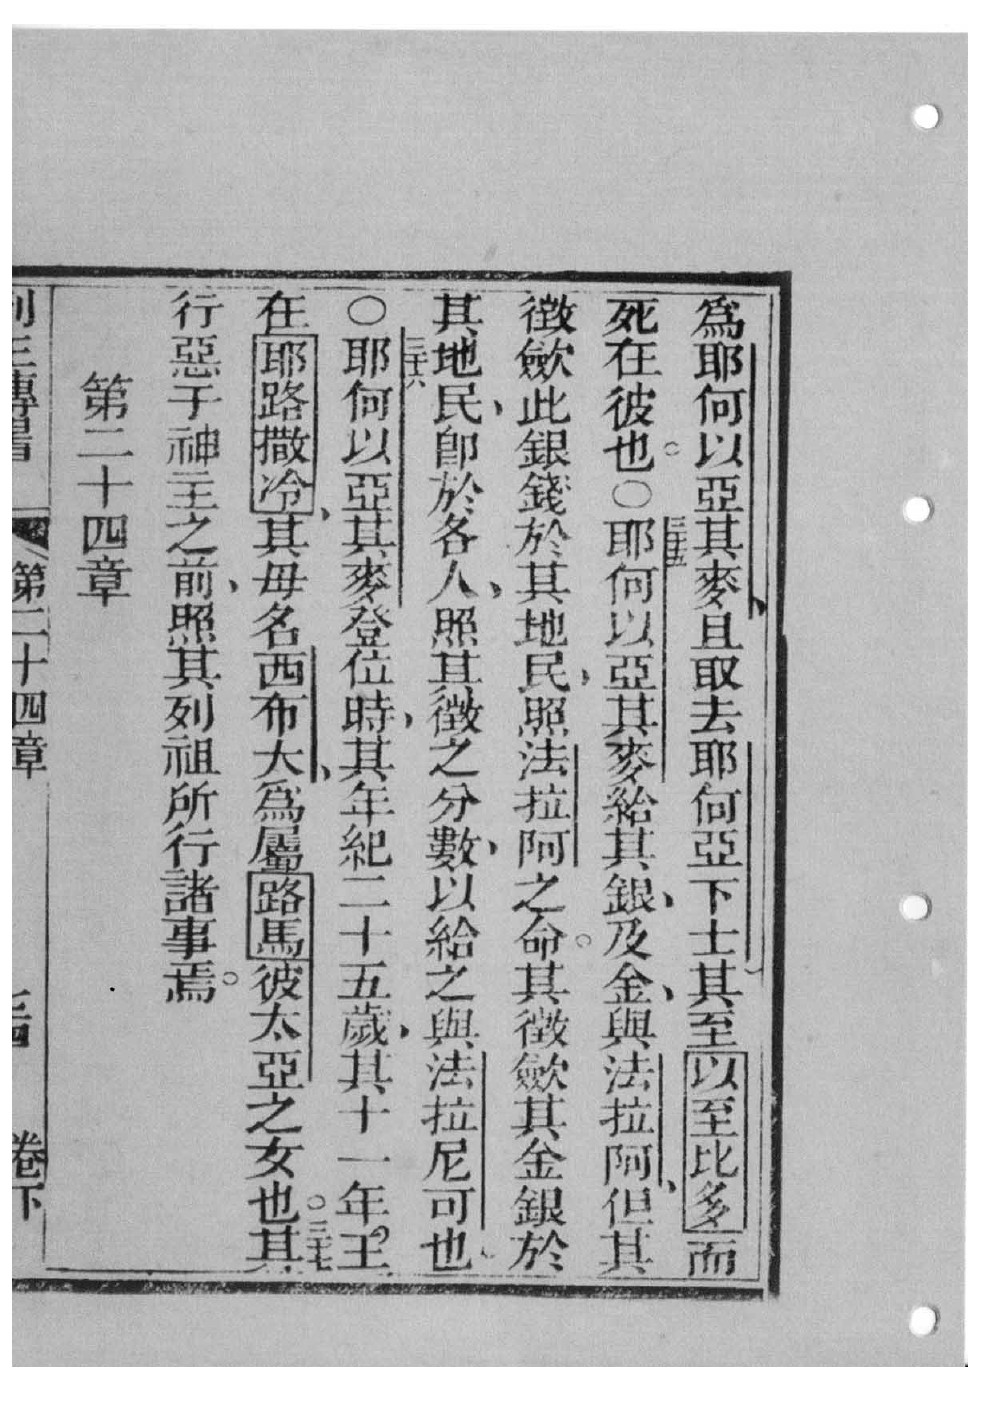 爲耶何以亞其麥、且取去耶何亞下士、其至以至比多、而
死在彼也。○三十五耶何以亞其麥給其銀、及金、與法拉阿、但其
徵歛此銀錢於其地民、照法拉阿之命。其徵歛其金銀於
其地民、卽於各人、照其徵之分數、以給之與法拉尼可也。
○三十六耶何以亞其麥登位時、其年紀二十五歲、其十一年王
在耶路撒冷、其母名西布大、爲屬路馬彼太亞之女也。三十七其
行惡于神主之前、照其列祖所行諸事焉。
第二十四章
列王傳書 第二十四章 卷下